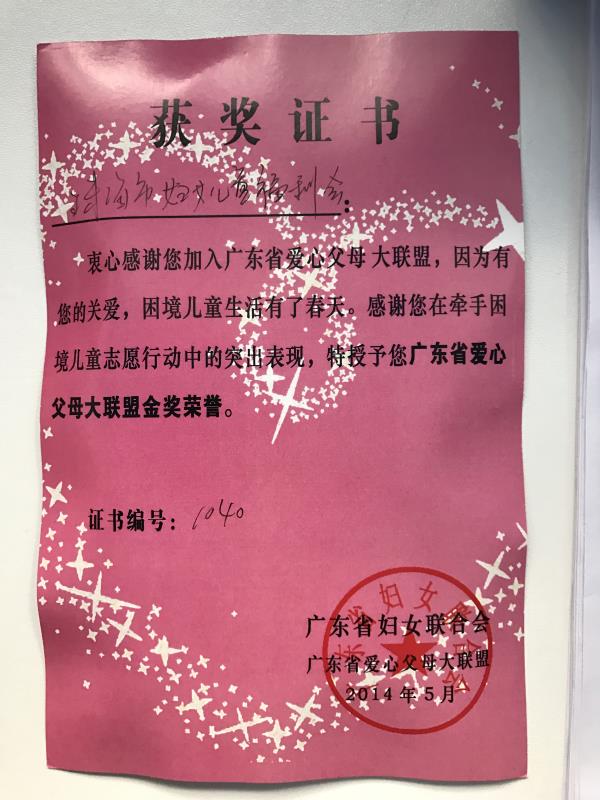 获奖证书
珠海市妇女儿童福利会：
衷心感谢您加入广东省爱心父母大联盟，因为有
您的关爱，困境儿童生活有了春天。感谢您在牵手困
境儿童志愿行动中的突出表现，特授予您广东省爱心
父母大联盟金奖荣誉。
证书编号：1040
广东省妇女联合会
广东省爱心父母大联盟
2014年5月
广东省妇女联合会